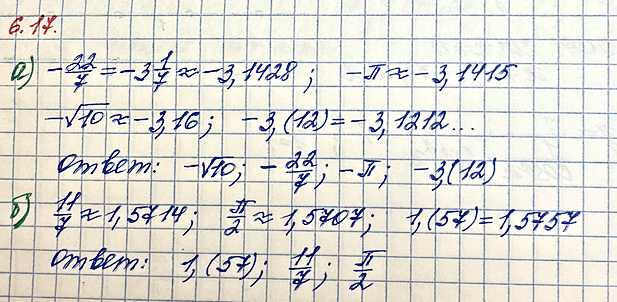 6.17.
а) -22/7 = -3 1/7 ≈ -3,1428; -π ≈ -3,1415
-√10 ≈ -3,16; -3,(12) = -3,1212...
Ответ: -√10; -22/7; -π; -3,(12)
б) 11/7 ≈ 1,5714; π/2 ≈ 1,5707; 1,(57) = 1,5757
Ответ: 1,(57); 11/7; π/2